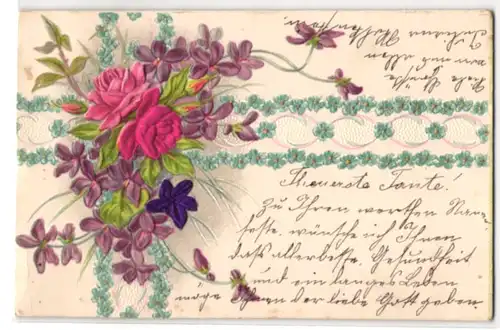 Theuerste Tante!
Zu Ihren werthen Namens-
feste wünsche ich Ihnen
das allerbeste Gesundheit
und ein langes Leben
möge Ihnen der liebe Gott geben.
Viele Grüße
von uns allen